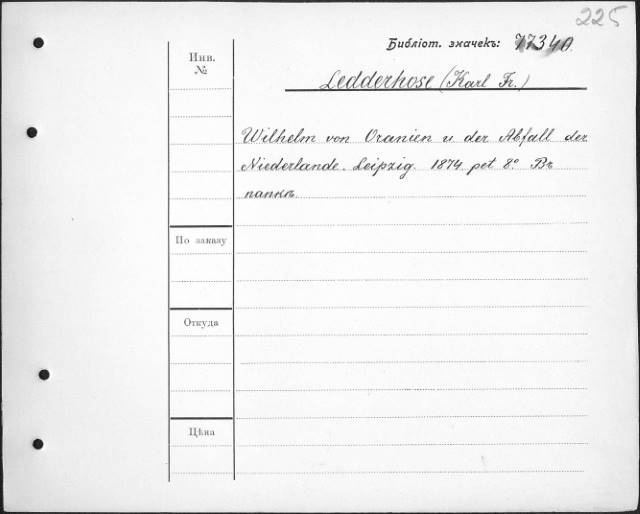 225
Библіот. значекъ: 77340
Инв.
№
Ledderhose (Karl Fr.)
Wilhelm von Oranien u. der Abfall der
Niederlande. Leipzig. 1874. pet 8°. Въ
папкѣ.
По заказу
Откуда
Цѣна